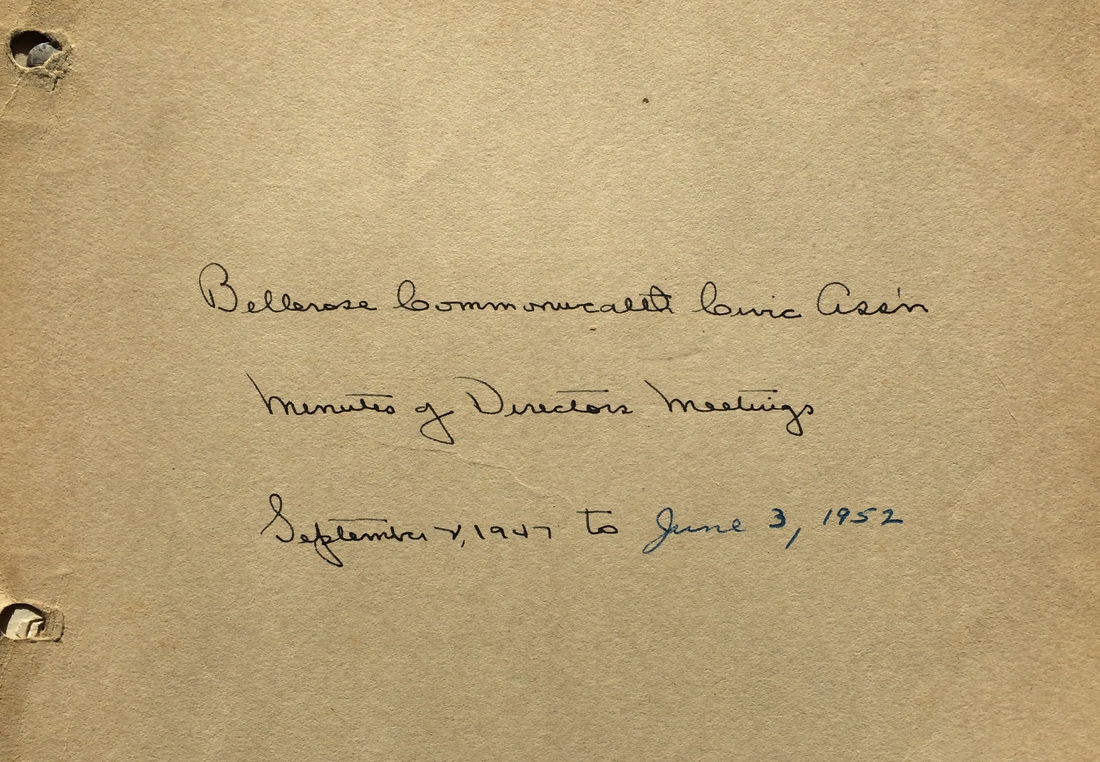 Bellerose Commonwealth Civic Ass'n
Minutes of Directors Meetings
September 2, 1947 to June 3, 1952